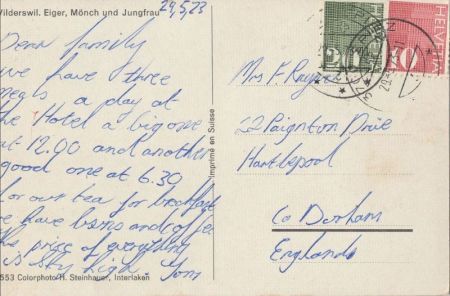 Wilderswil. Eiger, Mönch und Jungfrau
29,5,23
Dear family
we have three
meals a day at
the Hotel a big one
at 12.00 and another
good one at 6.30
for our tea for breakfast
we have buns and coffee
the price of everything
is sky high. Tom
553 Colorphoto H. Steinhauer, Interlaken
Imprimé en Suisse
HELVETIA
Mrs F
22 Paignton Drie
Hartlepool
Co Durham
England